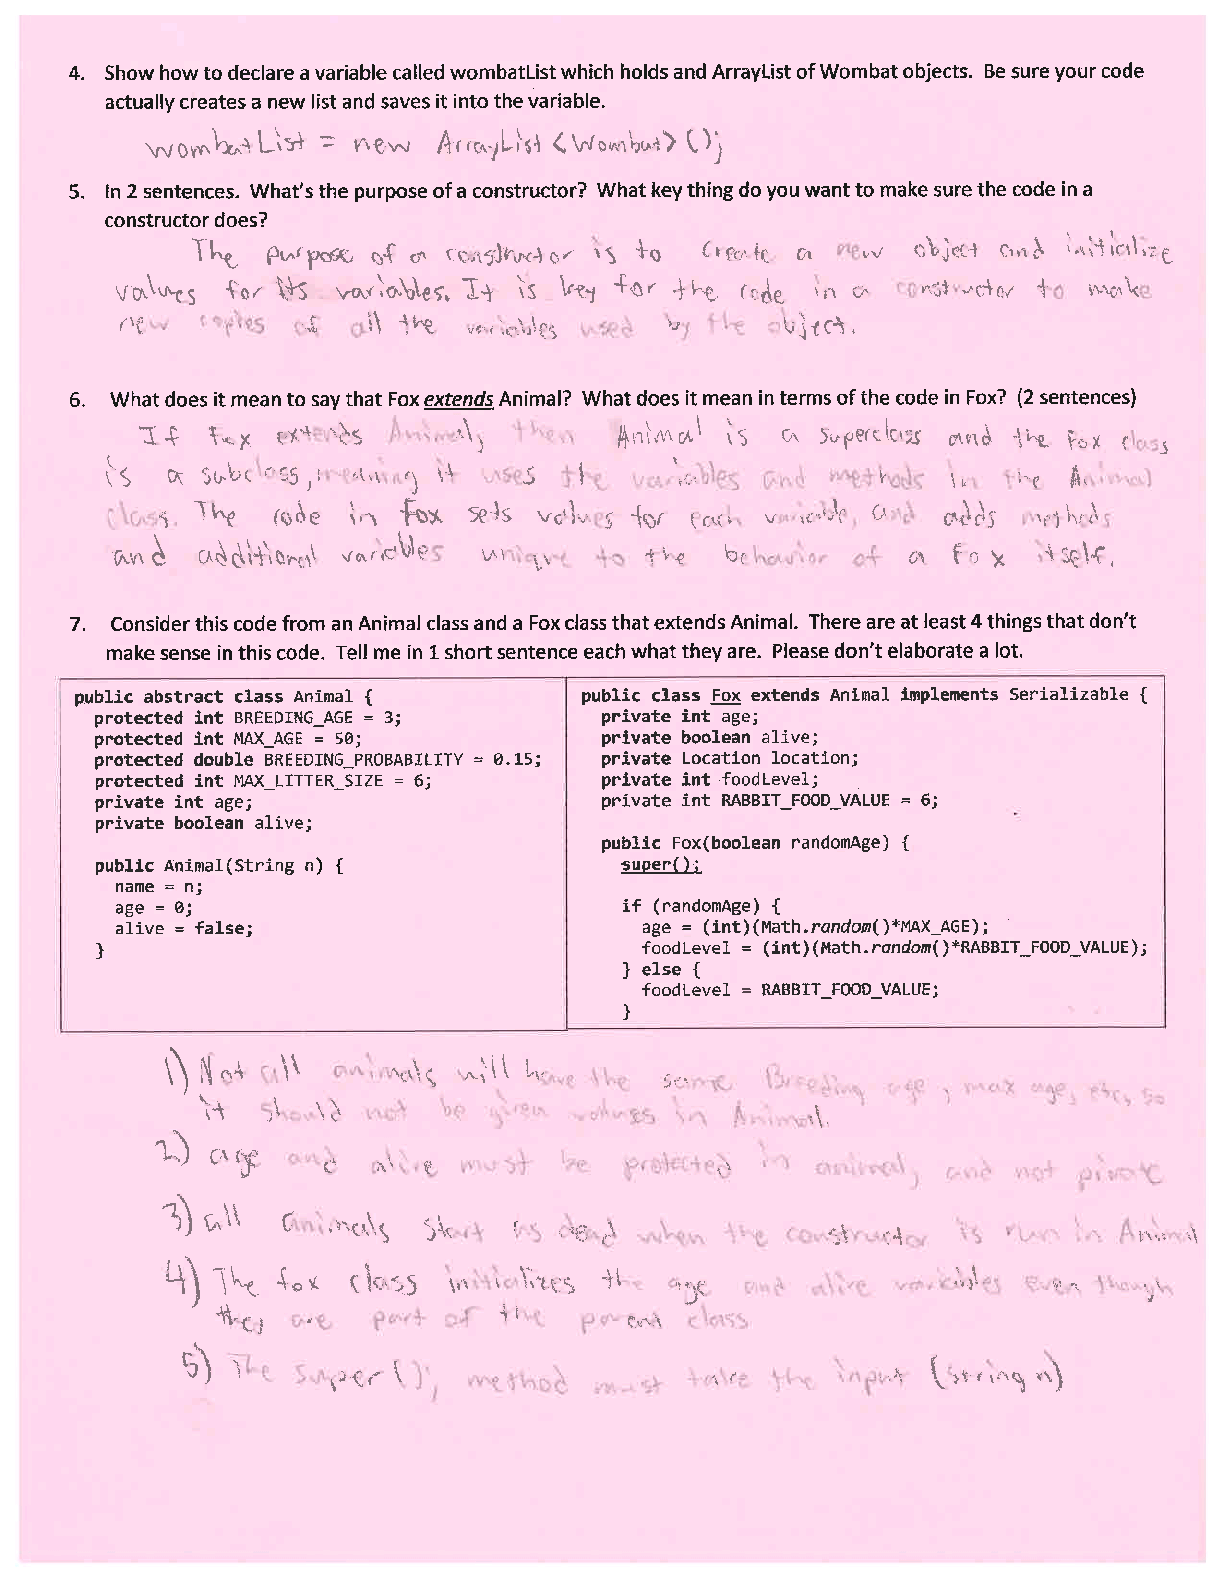 4. Show how to declare a variable called wombatList which holds and ArrayList of Wombat objects. Be sure your code
actually creates a new list and saves it into the variable.
wombatList = new ArrayList <Wombat> ();
5. In 2 sentences. What's the purpose of a constructor? What key thing do you want to make sure the code in a
constructor does?
The purpose of a constructor is to create a new object and initialize
values for its variables. It is key for the code in a constructor to make
new copies of all the variables used by the object.
6. What does it mean to say that Fox extends Animal? What does it mean in terms of the code in Fox? (2 sentences)
If Fox extends Animal, then Animal is a superclass and the Fox class
is a subclass, meaning it uses the variables and methods in the Animal
class. The code in fox sets values for each variable, and adds methods
and additional variables unique to the behavior of a fox itself.
7. Consider this code from an Animal class and a Fox class that extends Animal. There are at least 4 things that don't
make sense in this code. Tell me in 1 short sentence each what they are. Please don't elaborate a lot.
public abstract class Animal {
protected int BREEDING_AGE = 3;
protected int MAX_AGE = 50;
protected double BREEDING_PROBABILITY = 0.15;
protected int MAX_LITTER_SIZE = 6;
private int age;
private boolean alive;
public Animal(String n) {
name = n;
age = 0;
alive = false;
}
public class Fox extends Animal implements Serializable {
private int age;
private boolean alive;
private Location location;
private int foodLevel;
private int RABBIT_FOOD_VALUE = 6;
public Fox(boolean randomAge) {
super();
if (randomAge) {
age = (int)(Math.random()*MAX_AGE);
foodLevel = (int)(Math.random()*RABBIT_FOOD_VALUE);
} else {
foodLevel = RABBIT_FOOD_VALUE;
}
1) Not all animals will have the same Breeding age, max age, etc, so
it should not be given values in Animal.
2) age and alive must be protected in animal, and not private
3) all animals start as dead when the constructor is run in Animal
4) The fox class initializes the age and alive variables even though
they are part of the parent class
5) The super(); method must take the input (string n)